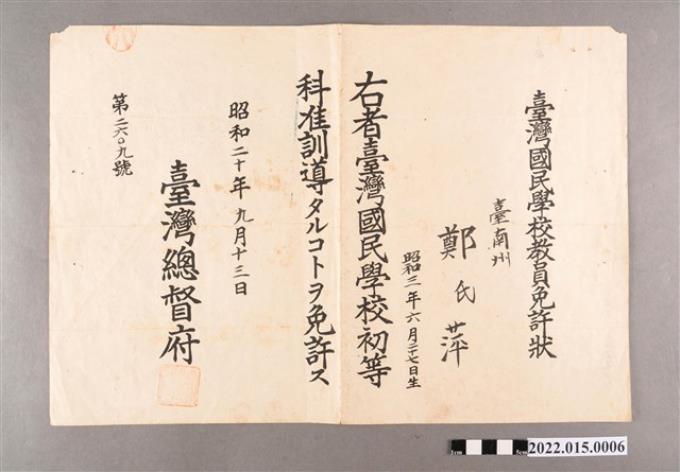 臺灣國民學校教員免許狀
臺南州
鄭氏萍
昭和三年六月二十七日生
右者臺灣國民學校初等
科准訓導タルコトヲ免許ス
昭和二十年九月十三日
臺灣總督府
第二六〇九號
2022.015.0006